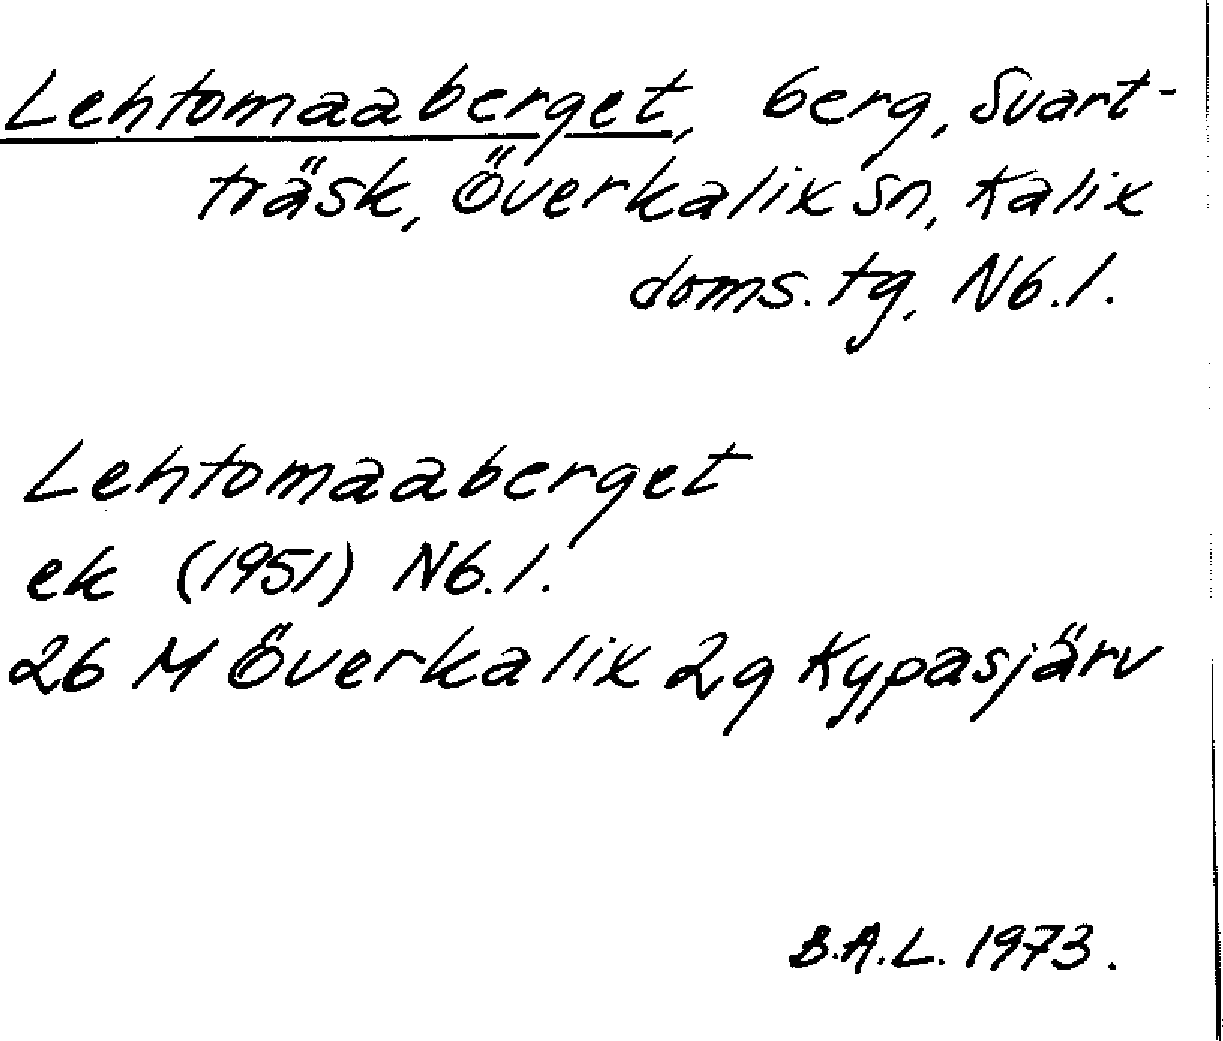 Lehtomaaberget, berg, Svart-
träsk, Överkalix sn, Kalix
doms. tg, Nb.l.
Lehtomaaberget
ek (1951) Nb.l.
26 M Överkalix 2g Kypasjärv
B.A.L. 1973.